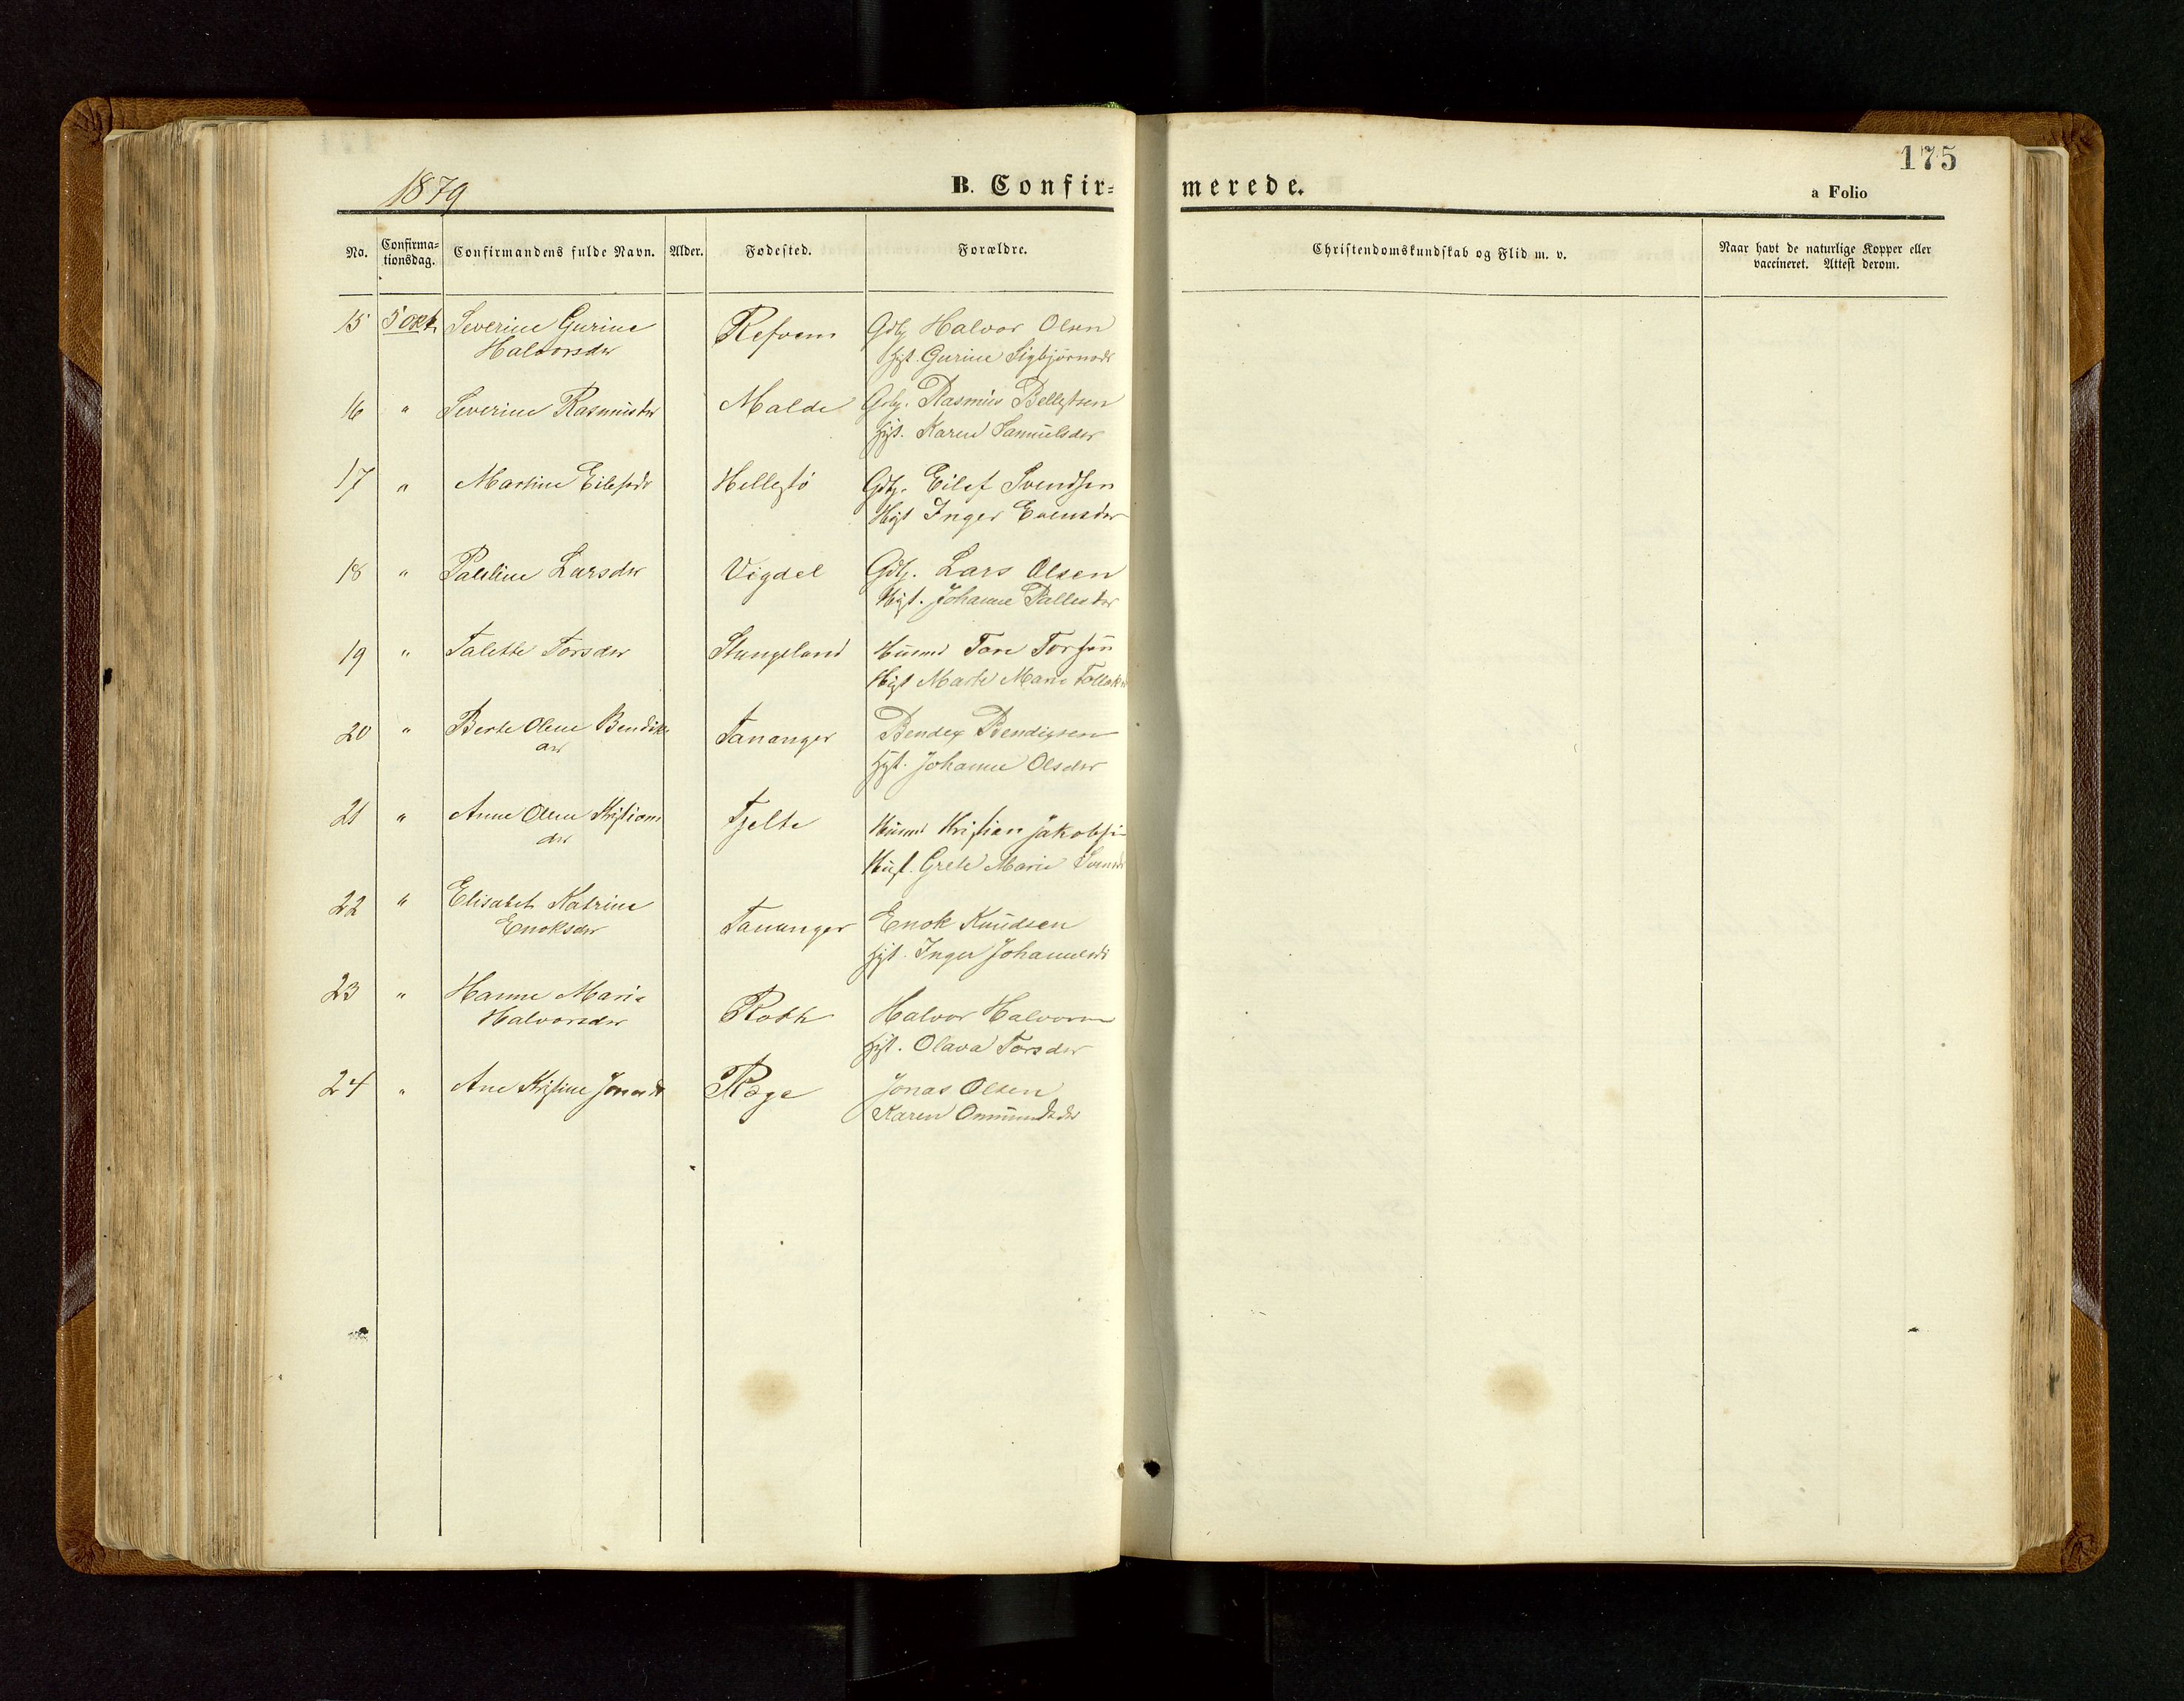 175
1879
B. Confir=
merede.
a Folio
No.
Confirma=
tionsdag.
Confirmandens fulde Navn.
Alder.
Fødested.
Forældre.
Christendomskundskab og Flid m. v.
Naar havt de naturlige Kopper eller
vaccineret. Attest derom.
15 5 Okt. Severine Gurine Refvem Gdbr Halvor Olsen
Halvorsdtr Hst. Gurine Sigbjörnsdr
16 " Severine Rasmusdtr Malde Gdbr. Rasmus
Hst. Karen Samuelsdtr
17 " Martine Eilefsdr Hellestö Gdbr. Eilef Svendsen
Hst Inger Evensdtr
18 " Palline Larsdtr Vigdel Gdbr. Lars Olsen
Hst. Johanne Pallesdtr
19 " Talette Torsdtr Stangeland Husmd Tore Torsen
Hst Marte Marie
20 " Berte Olene Bendiks Tananger Bendex Bendixsen
dtr Hst. Johanne Olsdtr
21 " Anne Olene Kristians Tjelte Husmd Kristian Jakobsen
dtr Hust. Grete Marie
22 " Elisabet Katrine Tananger Enok Knudsen
Enoksdtr Hst. Inger Johannesdr
23 " Hanne Marie Roth Halvor Halvorsen
Halvorsdtr Hst. Olava Torsdtr
24 " Ane Kristine Jonasdt Ræge Jonas Olsen
Karen Ommundsdtr